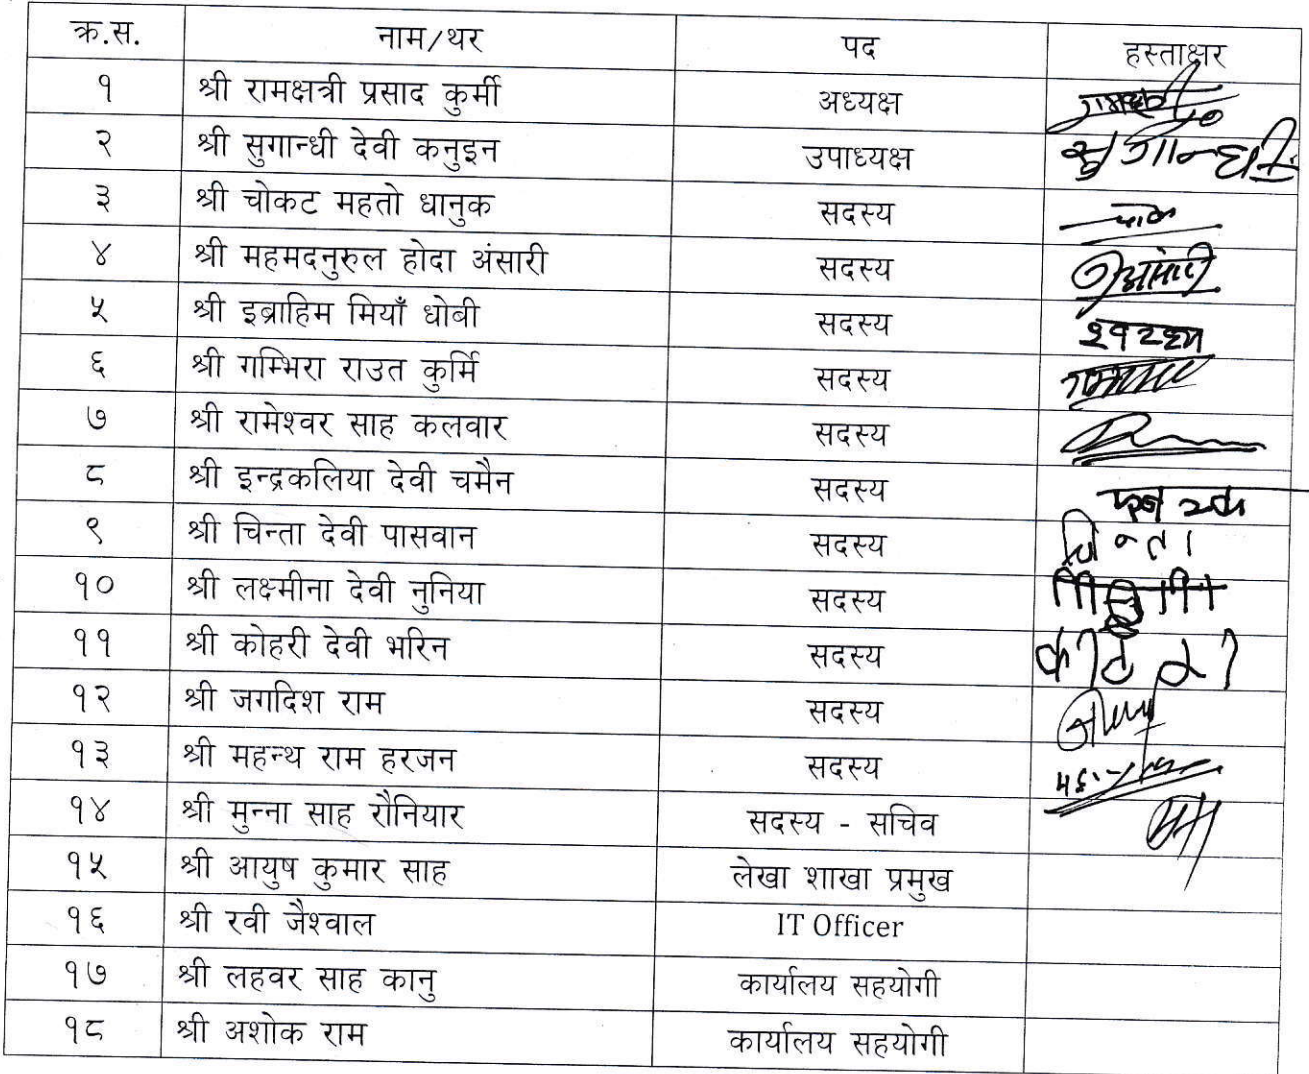 क्र.स. नाम/थर पद हस्ताक्षर
१ श्री रामक्षत्री प्रसाद कुर्मी अध्यक्ष
२ श्री सुगान्धी देवी कनुइन उपाध्यक्ष सुगान्धी
३ श्री चोकट महतो धानुक सदस्य
४ श्री महमदनुरुल होदा अंसारी सदस्य
५ श्री इब्राहिम मियाँ धोबी सदस्य
६ श्री गम्भिरा राउत कुर्मि सदस्य
७ श्री रामेश्वर साह कलवार सदस्य
८ श्री इन्द्रकलिया देवी चमैन सदस्य
९ श्री चिन्ता देवी पासवान सदस्य चिन्ता
१० श्री लक्ष्मीना देवी नुनिया सदस्य
११ श्री कोहरी देवी भरिन सदस्य
१२ श्री जगदिश राम सदस्य
१३ श्री महन्थ राम हरजन सदस्य
१४ श्री मुन्ना साह रौनियार सदस्य - सचिव
१५ श्री आयुष कुमार साह लेखा शाखा प्रमुख
१६ श्री रवी जैश्वाल IT Officer
१७ श्री लहवर साह कानु कार्यालय सहयोगी
१८ श्री अशोक राम कार्यालय सहयोगी